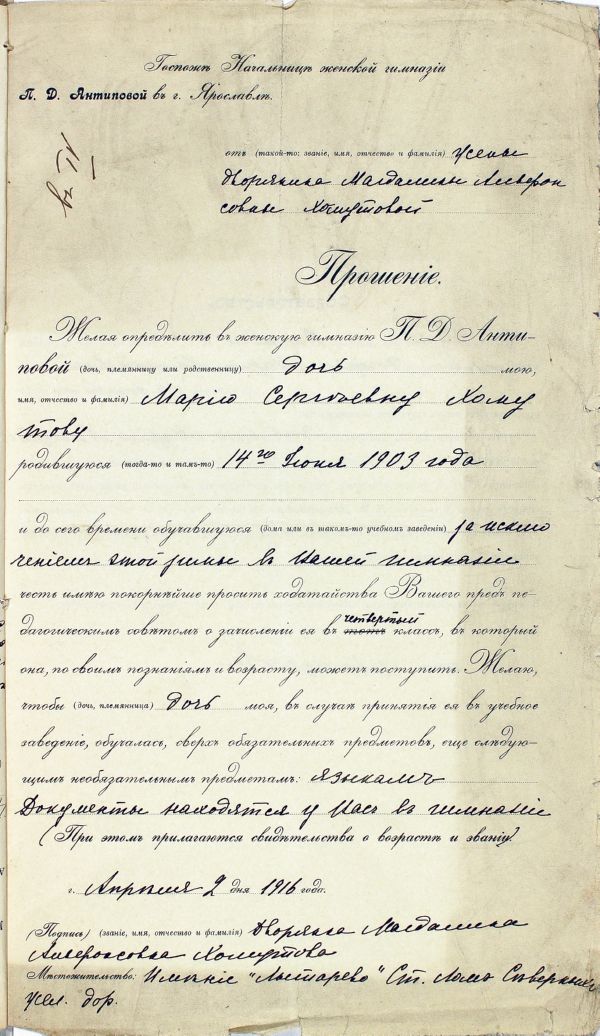 Госпожѣ Начальницѣ женской гимназіи
П. Д. Антиповой въ г. Ярославлѣ.
въ IV
отъ (такой-то: званіе, имя, отчество и фамилія) Жены
дворянина Магдалины Альфон
совны Хомутовой
Прошеніе.
Желая опредѣлить въ женскую гимназію П. Д. Анти-
повой (дочь, племянницу или родственницу) дочь мою,
имя, отчество и фамилія) Марію Сергѣевну Хому
тову
родившуюся (тогда-то и тамъ-то) 14го Іюня 1903 года
и до сего времени обучавшуюся (дома или въ такомъ-то учебномъ заведеніи) за исклю
ченіемъ этой зимы въ Вашей гимназіи
честь имѣю покорнѣйше просить ходатайства Вашего предъ пе-
четвертый
дагогическимъ совѣтомъ о зачисленіи ея въ классъ, въ который
она, по своимъ познаніямъ и возрасту, можетъ поступить. Желаю,
чтобы (дочь, племянница) дочь моя, въ случаѣ принятія ея въ учебное
заведеніе, обучалась, сверхъ обязательныхъ предметовъ, еще слѣдую-
щимъ необязательнымъ предметамъ: языкамъ
Документы находятся у Васъ въ гимназіи
(При этомъ прилагаются свидѣтельства о возрастѣ и званіи)
г. Апрѣля 2 дня 1916 года.
(Подпись) (званіе, имя, отчество и фамилія) Дворянка Магдалина
Альфонсовна Хомутова
Мѣстожительство: Имѣніе "Лытарево" Ст. Ломъ Сѣверныхъ
жел. дор.